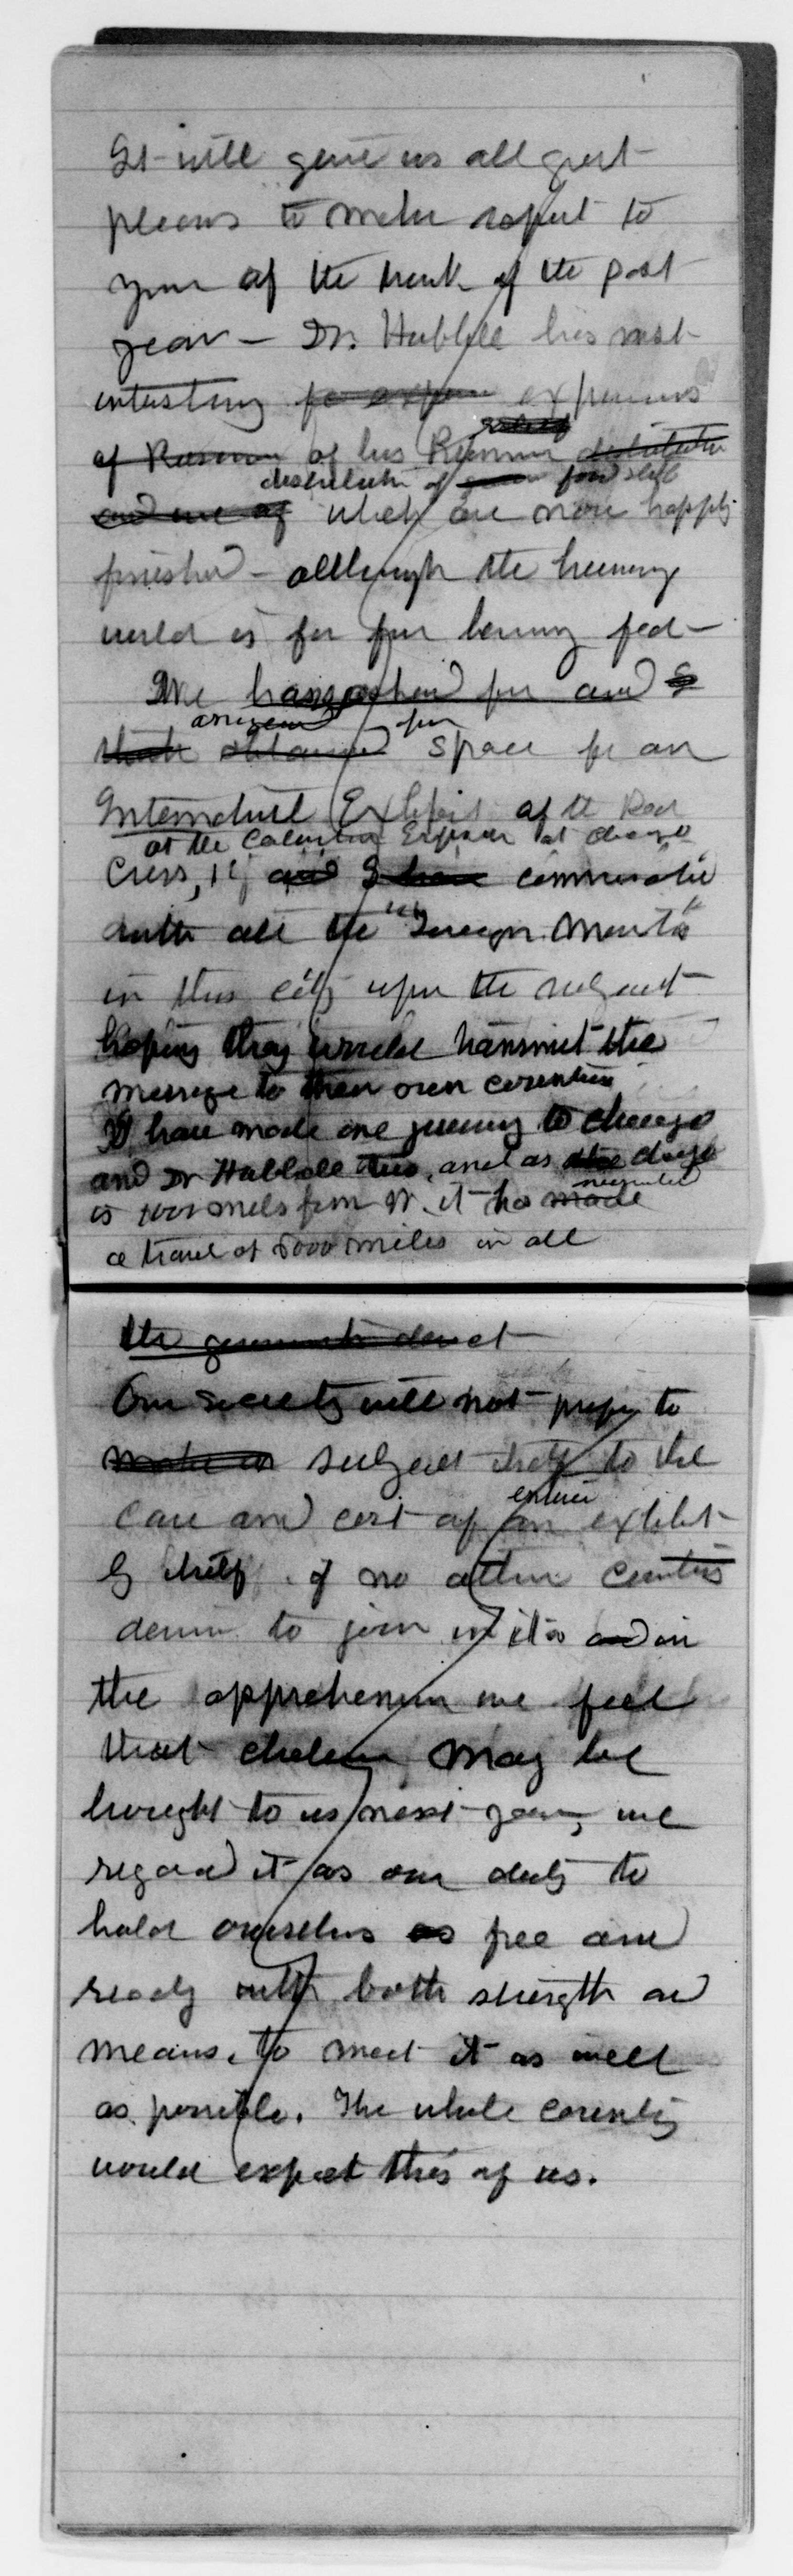 It will give us all great
pleasure to make report to
you of the work of the past
year — Dr. Hubbell his most
interesting experiences
of Russian of his Russian relief distribution
distribution of food relief
and we of which are now happily
finished — although the hungry
world is far from being fed —
We have asked for and
arranged for
obtained space for an
International Exhibit of the Red
at the Columbian Exposition at Chicago
Cross, and I have communicated
with all the "Foreign Ministers"
in this city upon the subject
hoping they would transmit the
message to their own countries
I have made one journey to Chicago
and Dr Hubbell two, and as Chicago
required
is 1000 miles from W. it has made
a travel of 6000 miles in all
the
Our society will not propose to
make an subject itself to the
entire
care and cost of an exhibit
by itself if no other countries
desire to join in it and in
the apprehension we feel
that cholera may be
brought to us next year, we
regard it as our duty to
hold ourselves as free and
ready with both strength and
means, to meet it as well
as possible. The whole country
would expect this of us.